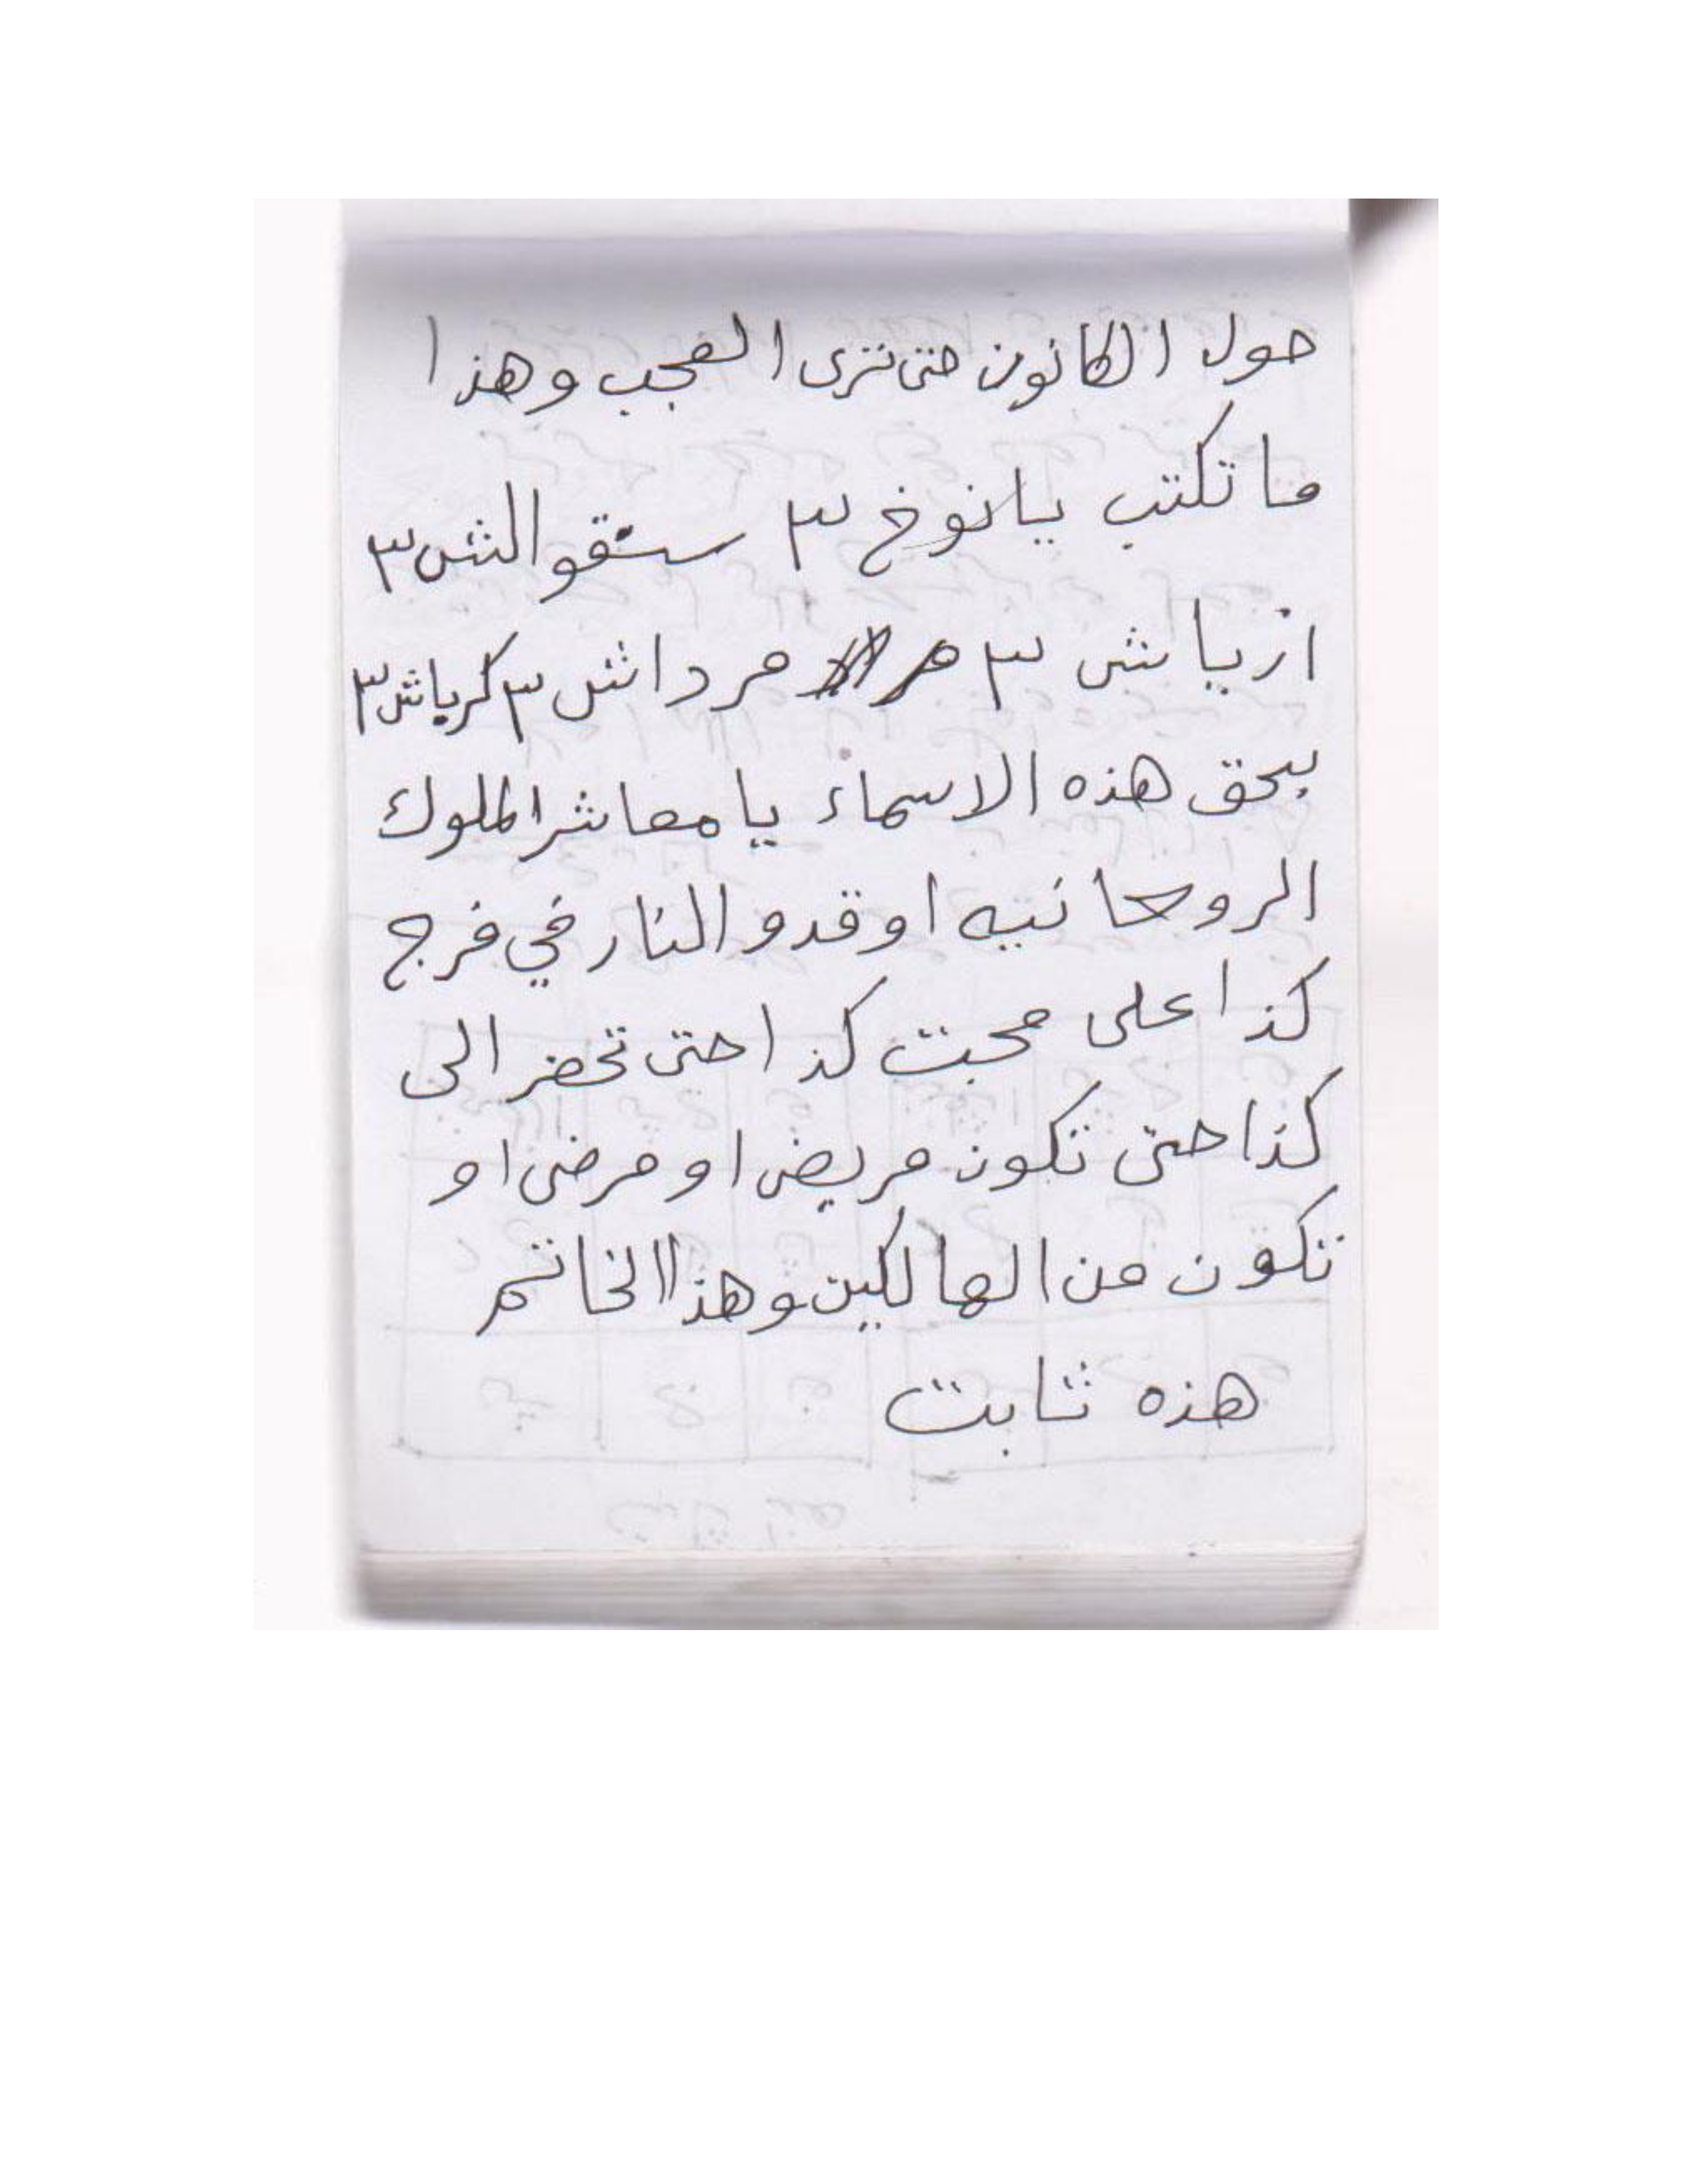 حول الكانون حتى ترى العجب وهذا
ما تكتب يانوخ ٣ سقوالش ٣
ازرياش ٣ مرداش ٣ كرياش ٣
بحق هذه الاسماء يا معاشر الملوك
الروحانيه اوقدو النار في فرج
كذا على محبت كذا حتى تحضر الى
كذا حتى تكون مريض او مرضى او
تكون من الهالكين وهذا الخاتم
هذه ثابت